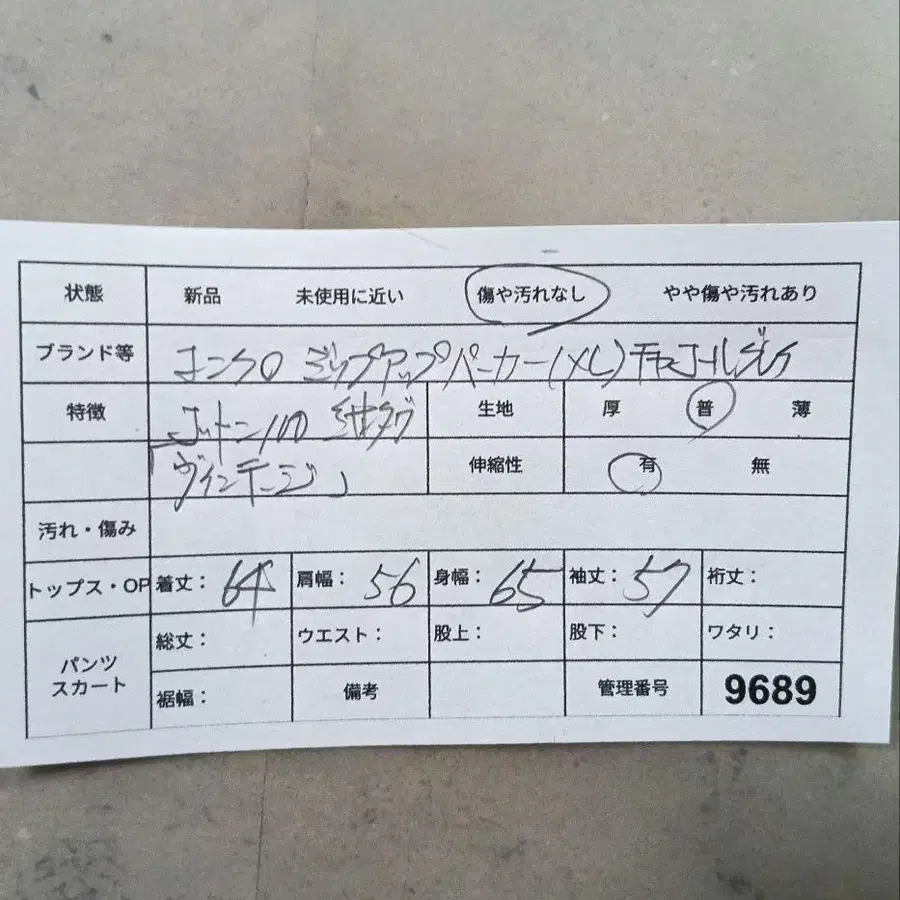 状態 新品 未使用に近い 傷や汚れなし やや傷や汚れあり
ブランド等 ユニクロ ジップアップパーカー(XL) チャコールグレイ
特徴 コットン100 生地 厚 普 薄
「ヴィンテージ」 伸縮性 有 無
汚れ・傷み
トップス・OP 着丈: 64 肩幅: 56 身幅: 65 袖丈: 57 裄丈:
パンツ スカート 総丈: ウエスト: 股上: 股下: ワタリ:
裾幅: 備考 管理番号 9689